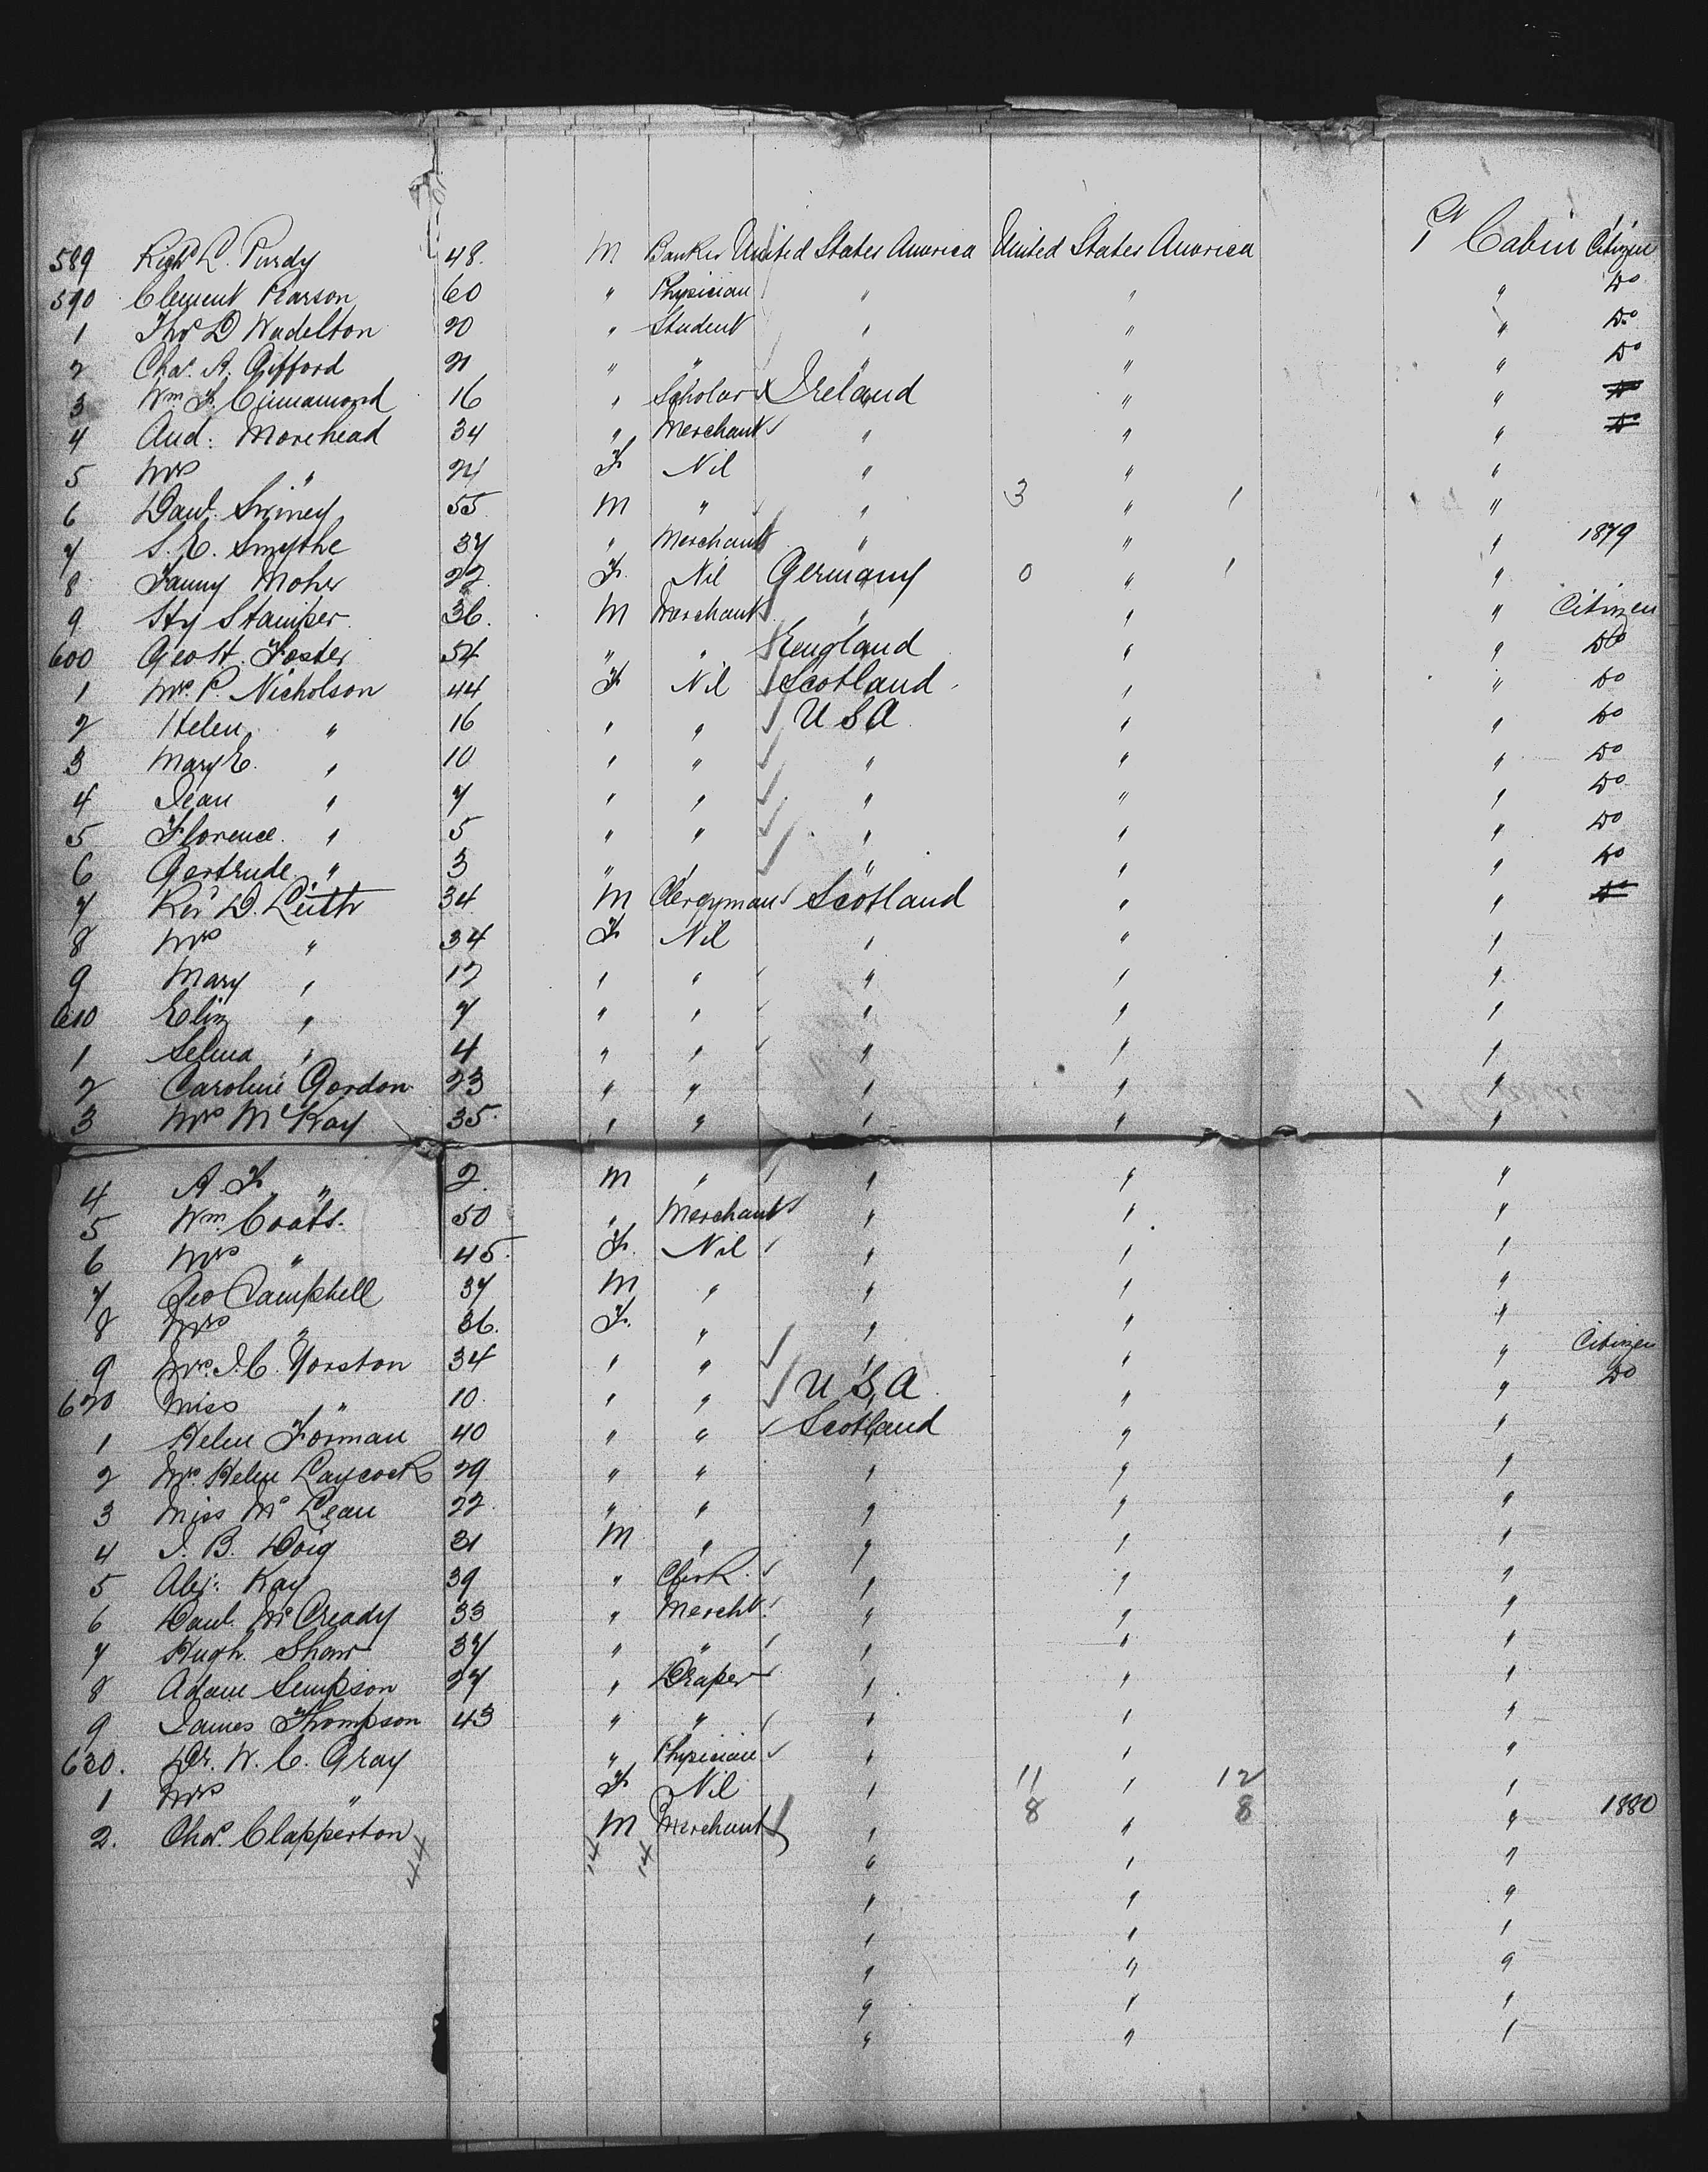 589 Richd L. Purdy 48. M Banker United States America United States America 1st Cabin Citizen
590 Clement Pearson 60 " Physician " " " Do
1 Thos D Wadelton 20 " Student " " " Do
2 Chas. A. Gifford 21 " " " " " Do
3 Wm F. Cinnamond 16 " Scholar x Ireland " " Do
4 And: Morehead 34 " Merchant " " " Do
5 Mrs " 21 F Nil " " "
6 Danl. Siviney 55 M " " 3 " 1 "
7 S. E. Smythe 37 " Merchant " " " 1879
8 Fanny Moher 22. F. Nil Germany 0 " 1 "
9 Hy Stamper 36. M Merchant " " " Citizen
600 Geo H. Foster 54 " " England " " Do
1 Mrs. P. Nicholson 44 F Nil Scotland " " Do
2 Helen " 16 " " U S A " " Do
3 Mary E. " 10 " " " " " Do
4 Jean " 7 " " " " " Do
5 Florence. " 5 " " " " " Do
6 Gertrude " 3 " " " " " Do
7 Revd D. Leith 34 M Clergyman Scotland " " Do
8 Mrs " 34 F Nil " " "
9 Mary " 12 " " " " "
610 Eliz " 7 " " " " "
1 Selina " 4 " " " " "
2 Caroline Gordon 23 " " " " "
3 Mrs McKay 35. " " " " "
4 A. F. " 2. M " " " "
5 Wm. Coats. 50 " Merchant " " "
6 Mrs " 45. F. Nil " " "
7 Geo Campbell 37 M " " " "
8 Mrs " 36. F. " " " "
9 Mrs. J. C. Yorston 34 " " " " " Citizen
620 Miss " 10. " " U S A " " Do
1 Helen Forman 40 " " Scotland " "
2 Mrs Helen Laycock 29 " " " " "
3 Miss McLean 22. " " " " "
4 J. B. Doig 31 M " " " "
5 Alex: Kay 39 " Clerk. " " "
6 Danl. McCready 33 " Mercht. " " "
7 Hugh Shaw 37 " " " " "
8 Adam Simpson 27 " Draper " " "
9 James Thompson 43 " " " " "
630. Dr. W. C. Gray " Physician " " "
1 Mrs " F Nil " 11 " 12 "
2. Chas. Clapperton M Merchant " 8 " 8 " 1880
44 14 14 " " "
" " "
" " "
" " "
" " "
" " "